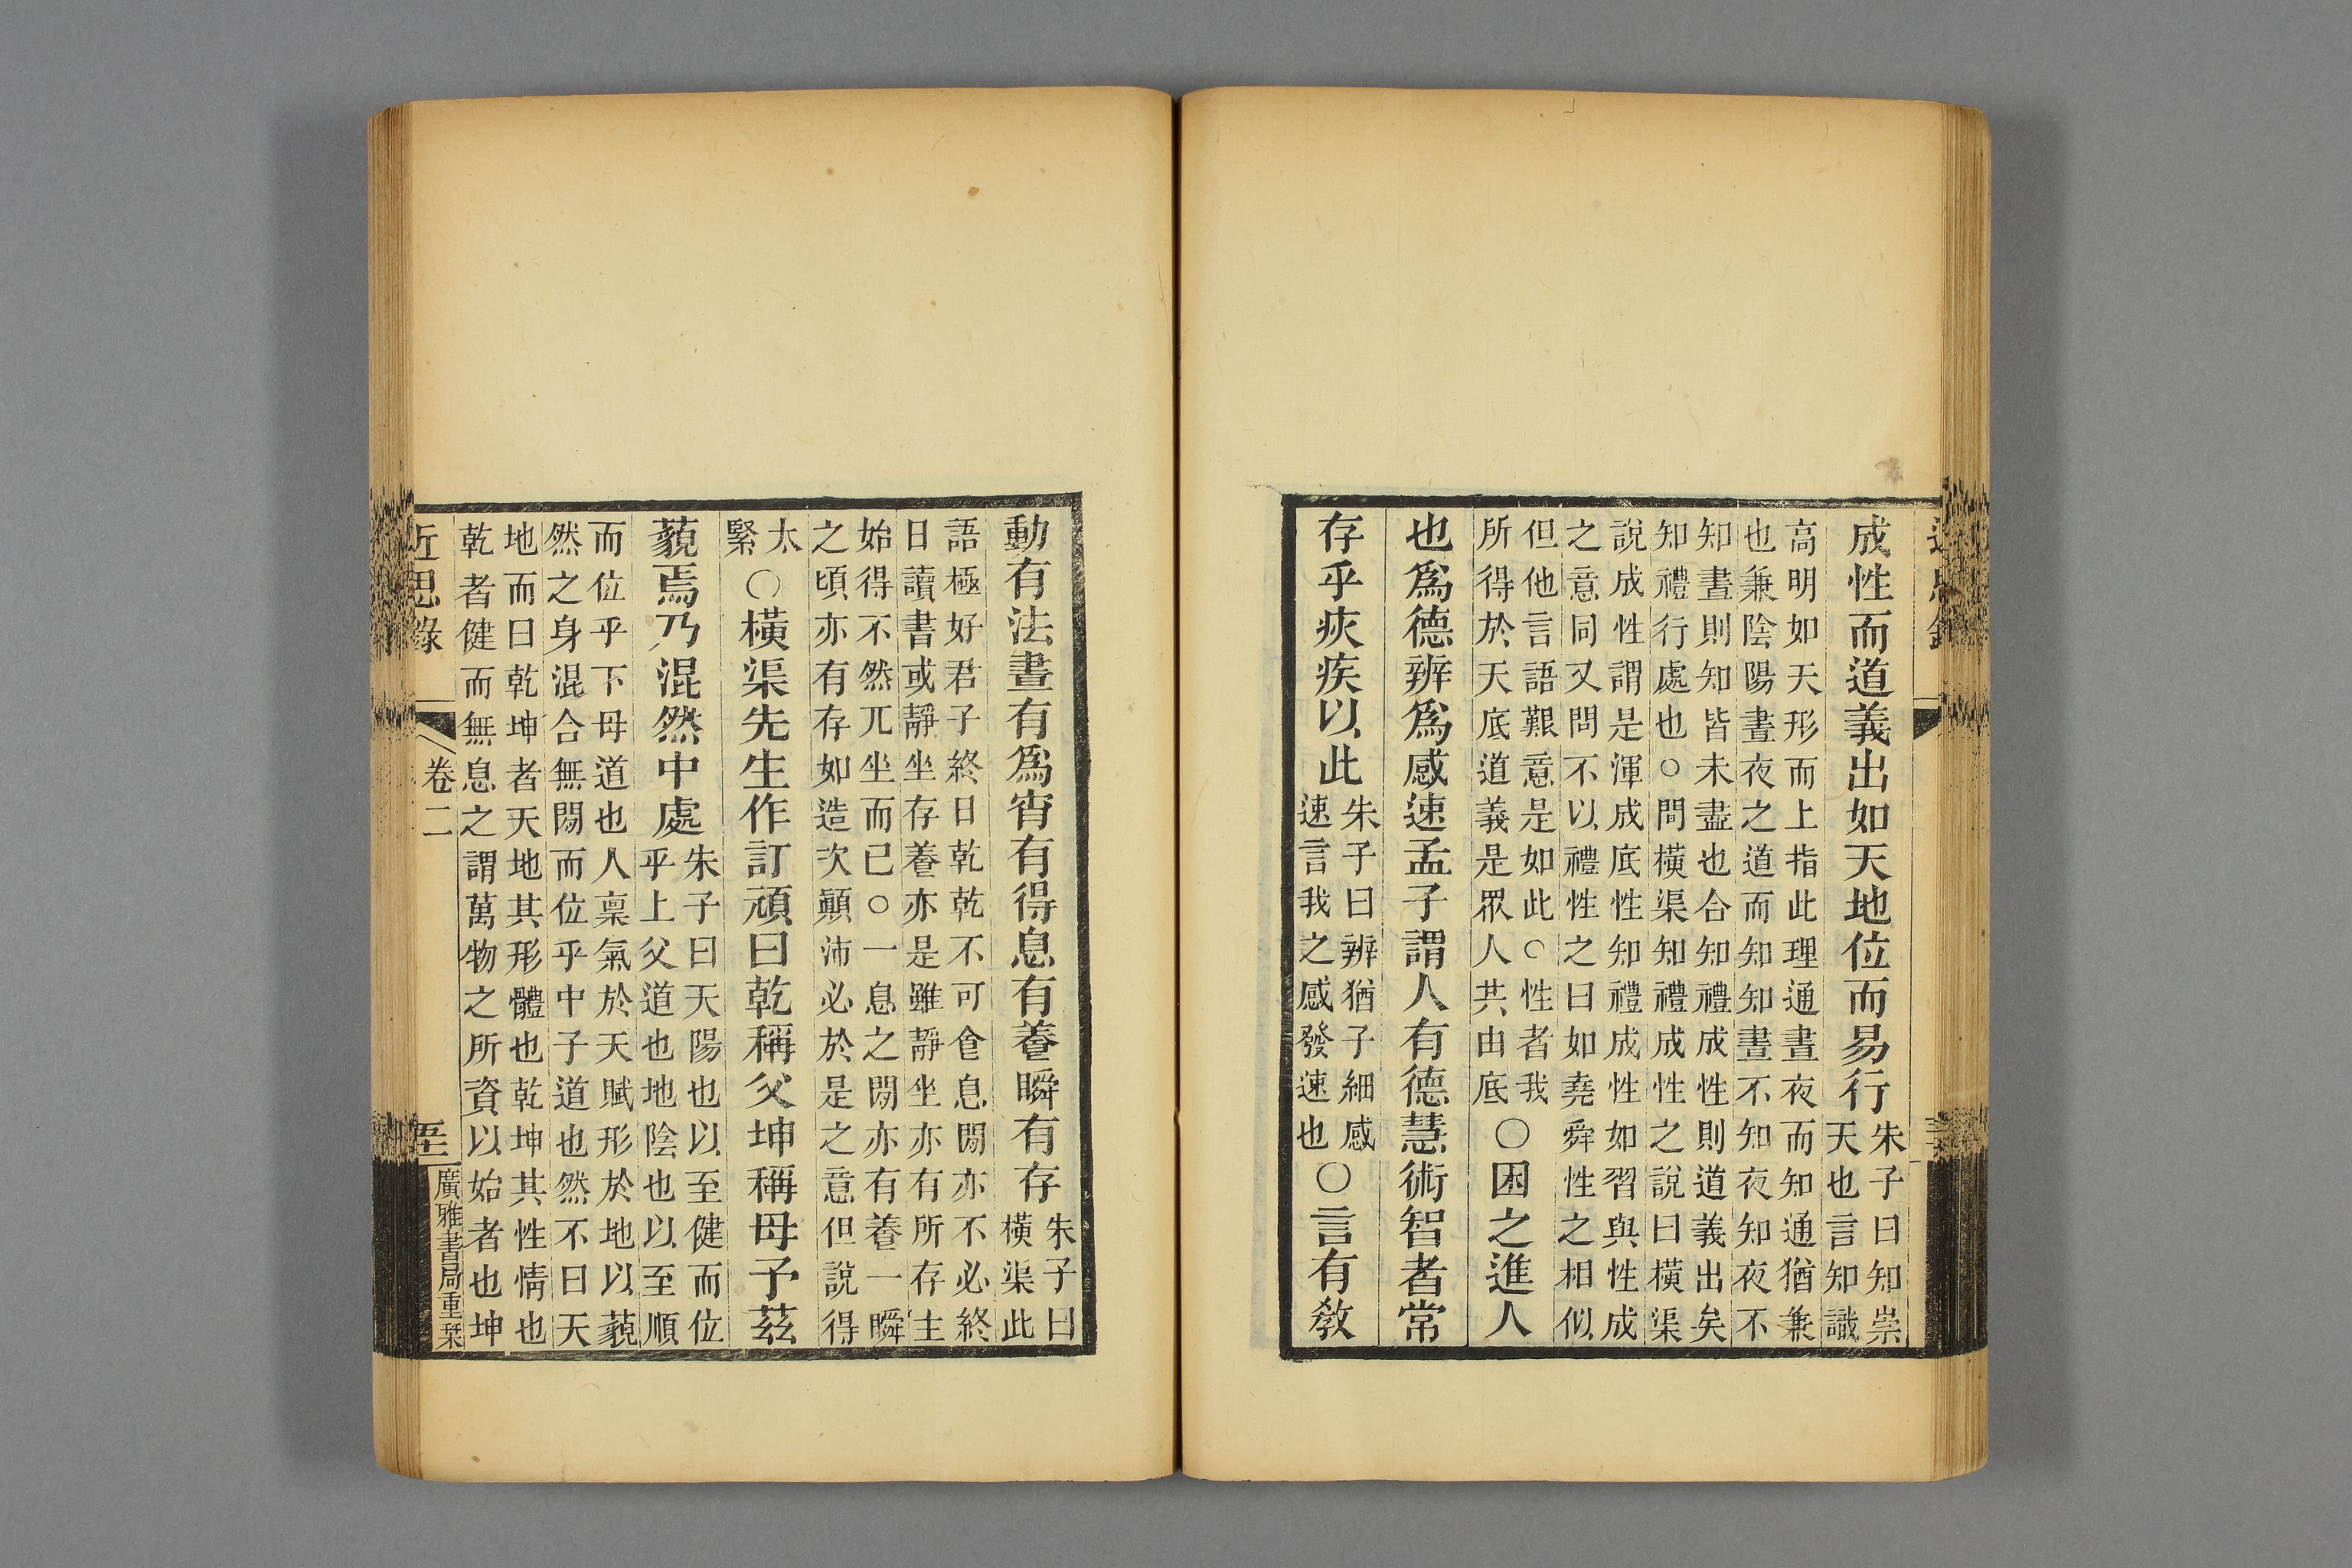 成性而道義出如天地位而易行
朱子曰知崇
天也言知識
高明如天形而上指此理通晝夜而知通猶兼
也兼陰陽晝夜之道而知知晝不知夜知夜不
知晝則知皆未盡也合知禮成性則道義出矣
知禮行處也○問橫渠知禮成性之說曰橫渠
說成性謂是渾成底性知禮成性如習與性成
之意同又問不以禮性之曰如堯舜性之相似
但他言語艱意是如此○性者我
所得於天底道義是眾人共由底
○困之進人
也爲德辨爲感速孟子謂人有德慧術智者常
存乎疢疾以此
朱子曰辨猶子細感
速言我之感發速也
○言有敎
動有法晝有爲宵有得息有養瞬有存
朱子曰
橫渠此
語極好君子終日乾乾不可食息閒亦不必終
日讀書或靜坐存養亦是雖靜坐亦有所存主
始得不然兀坐而已○一息之閒亦有養一瞬
之頃亦有存如造次顚沛必於是之意但說得
太
緊
○橫渠先生作訂頑曰乾稱父坤稱母予茲
藐焉乃混然中處
朱子曰天陽也以至健而位
乎上父道也地陰也以至順
而位乎下母道也人稟氣於天賦形於地以藐
然之身混合無閒而位乎中子道也然不曰天
地而曰乾坤者天地其形體也乾坤其性情也
乾者健而無息之謂萬物之所資以始者也坤
近思錄 卷二
廣雅書局重栞